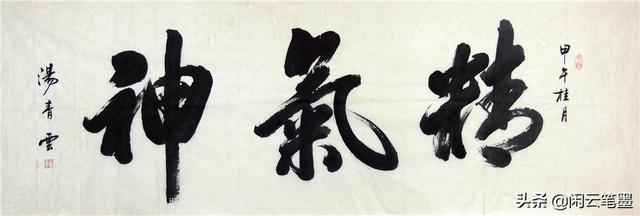 甲午桂月
精氣神
湯青雲
头条 @闲云笔墨